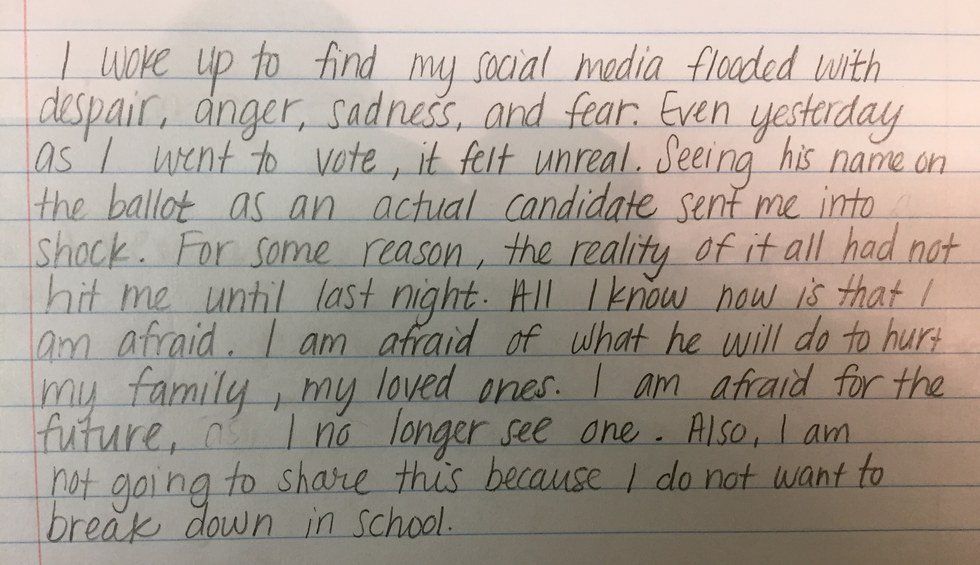 I woke up to find my social media flooded with
despair, anger, sadness, and fear. Even yesterday
as I went to vote, it felt unreal. Seeing his name on
the ballot as an actual candidate sent me into
shock. For some reason, the reality of it all had not
hit me until last night. All I know now is that I
am afraid. I am afraid of what he will do to hurt
my family, my loved ones. I am afraid for the
future, as I no longer see one. Also, I am
not going to share this because I do not want to
break down in school.